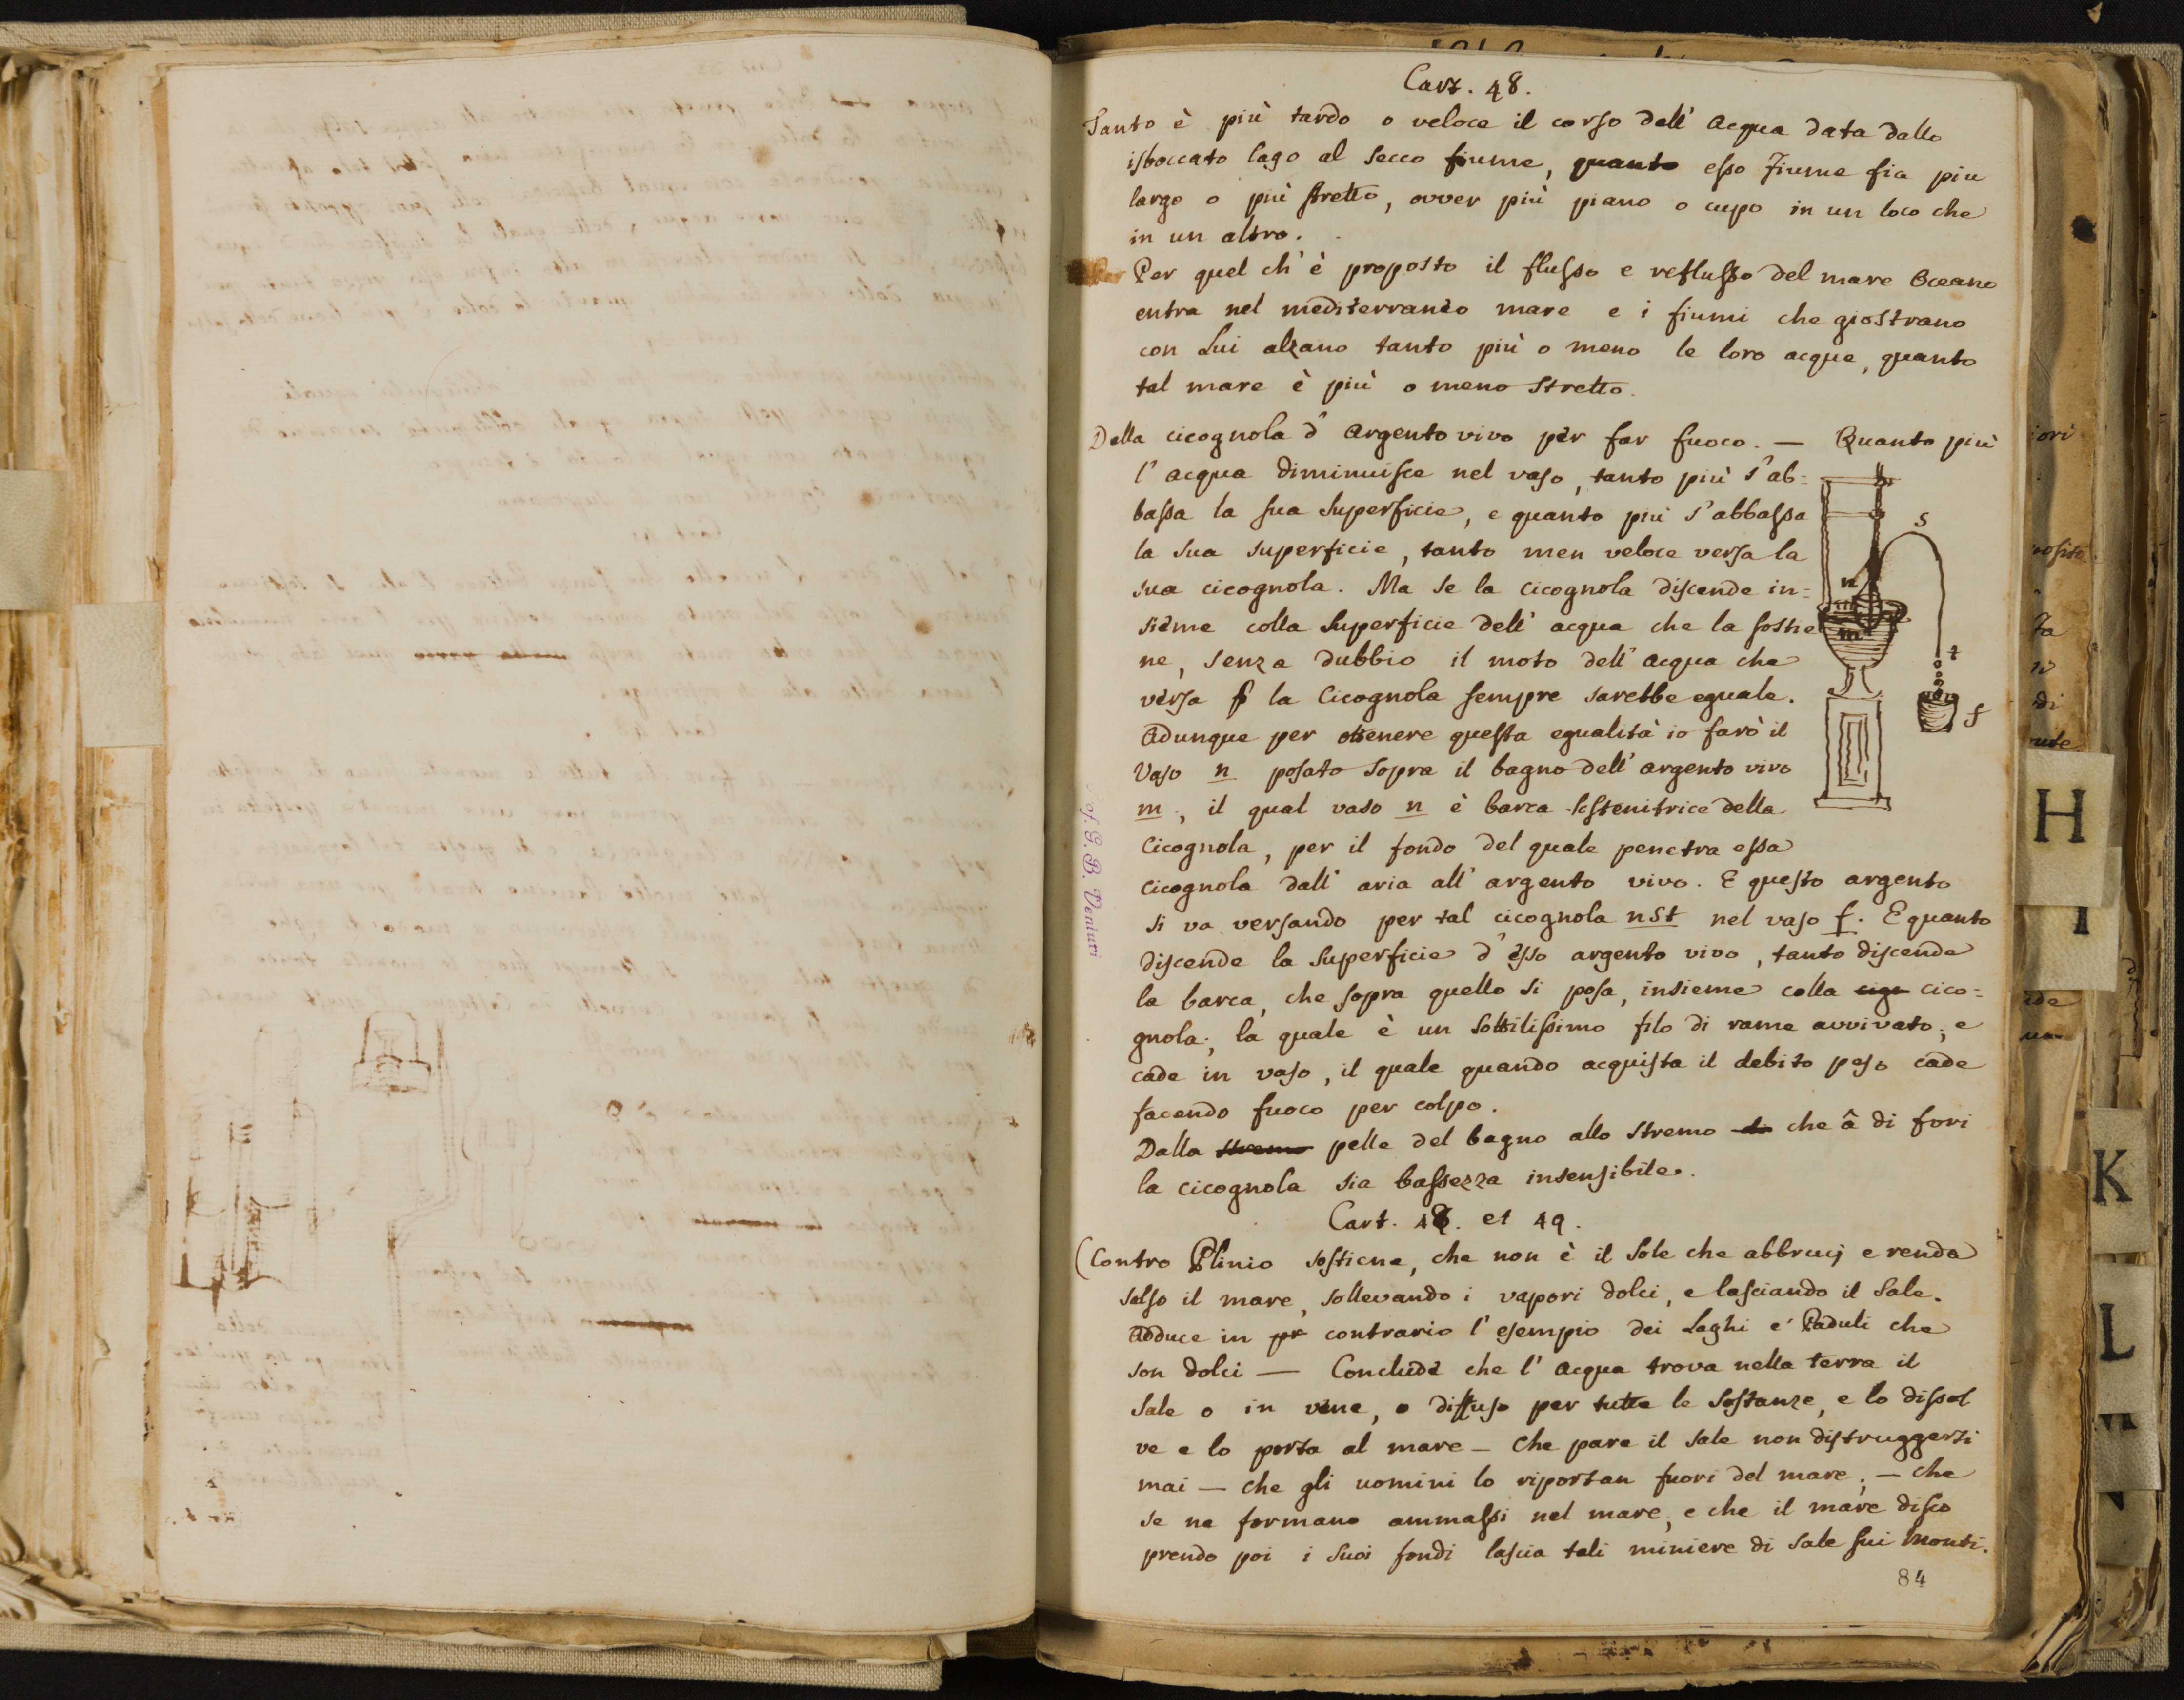 Cart. 48.
Tanto è più tardo o veloce il corso dell' Acqua data dallo
isboccato lago al secco fiume, quanto esso Fiume fia piu
largo o più stretto, ovver più piano o cupo in un loco che
in un altro.
Per Per quel ch' è proposto il flusso e reflusso del mare Oceano
entra nel mediterraneo mare e i fiumi che giostrano
con Lui alzano tanto più o meno le loro acque, quanto
tal mare è più o meno stretto.
Della cicognola d' Argento vivo per far fuoco. — Quanto più
l' acqua diminuisce nel vaso, tanto più s' ab=
bassa la sua superficie, e quanto più s' abbassa
la sua superficie, tanto men veloce versa la
sua cicognola. Ma se la cicognola discende in=
sieme colla superficie dell' acqua che la sostie
ne, senza dubbio il moto dell' acqua che
versa la Cicognola sempre sarebbe eguale.
Adunque per ottenere questa egualità io farò il
Vaso n posato sopra il bagno dell' argento vivo
m, il qual vaso n è barca sostenitrice della
Cicognola, per il fondo del quale penetra essa
cicognola dall' aria all' argento vivo. E questo argento
si va versando per tal cicognola nst nel vaso f. E quanto
discende la superficie d' esso argento vivo, tanto discende
la barca, che sopra quello si posa, insieme colla cigo cico=
gnola; la quale è un sottilissimo filo di rame avvivato; e
cade in vaso, il quale quando acquista il debito peso cade
facendo fuoco per colpo.
Dalla stremo pelle del bagno allo stremo di che â di fori
la cicognola sia bassezza insensibile.
s
n
m
t
f
Cart. 48. et 49.
(Contro Plinio sostiene, che non è il Sole che abbrucj e renda
salso il mare, sollevando i vapori dolci, e lasciando il Sale.
Adduce in pr contrario l' esempio dei Laghi e' Paduli che
son dolci — Conclude che l' Acqua trova nella terra il
Sale o in vene, o diffuso per tutte le sostanze, e lo dissol
ve e lo porta al mare — Che pare il sale non distruggersi
mai — che gli uomini lo riportan fuori del mare; — che
se ne formano ammassi nel mare, e che il mare disco
prendo poi i suoi fondi lascia tali miniere di sale sui Monti.
84
Prof. G. B. Venturi
H
I
K
L